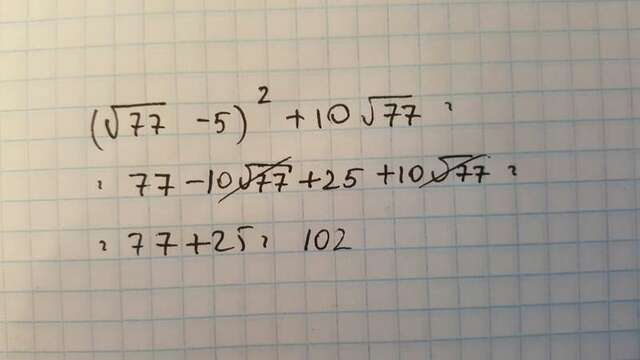 (√77 -5)² +10√77 =
= 77-10√77+25+10√77 =
= 77+25= 102